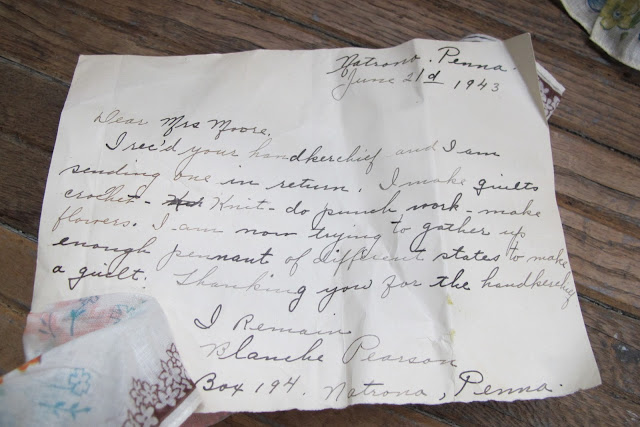 Natrona, Penna.
June 21d 1943
Dear Mrs Moore,
I rec'd your handkerchief and I am
sending one in return. I make quilts
crochet - Knit - do punch work - make
flowers. I am now trying to gather up
enough pennant of different states to make
a quilt. Thanking you for the handkerchief
I Remain
Blanche Pearson
Box 194. Natrona, Penna.